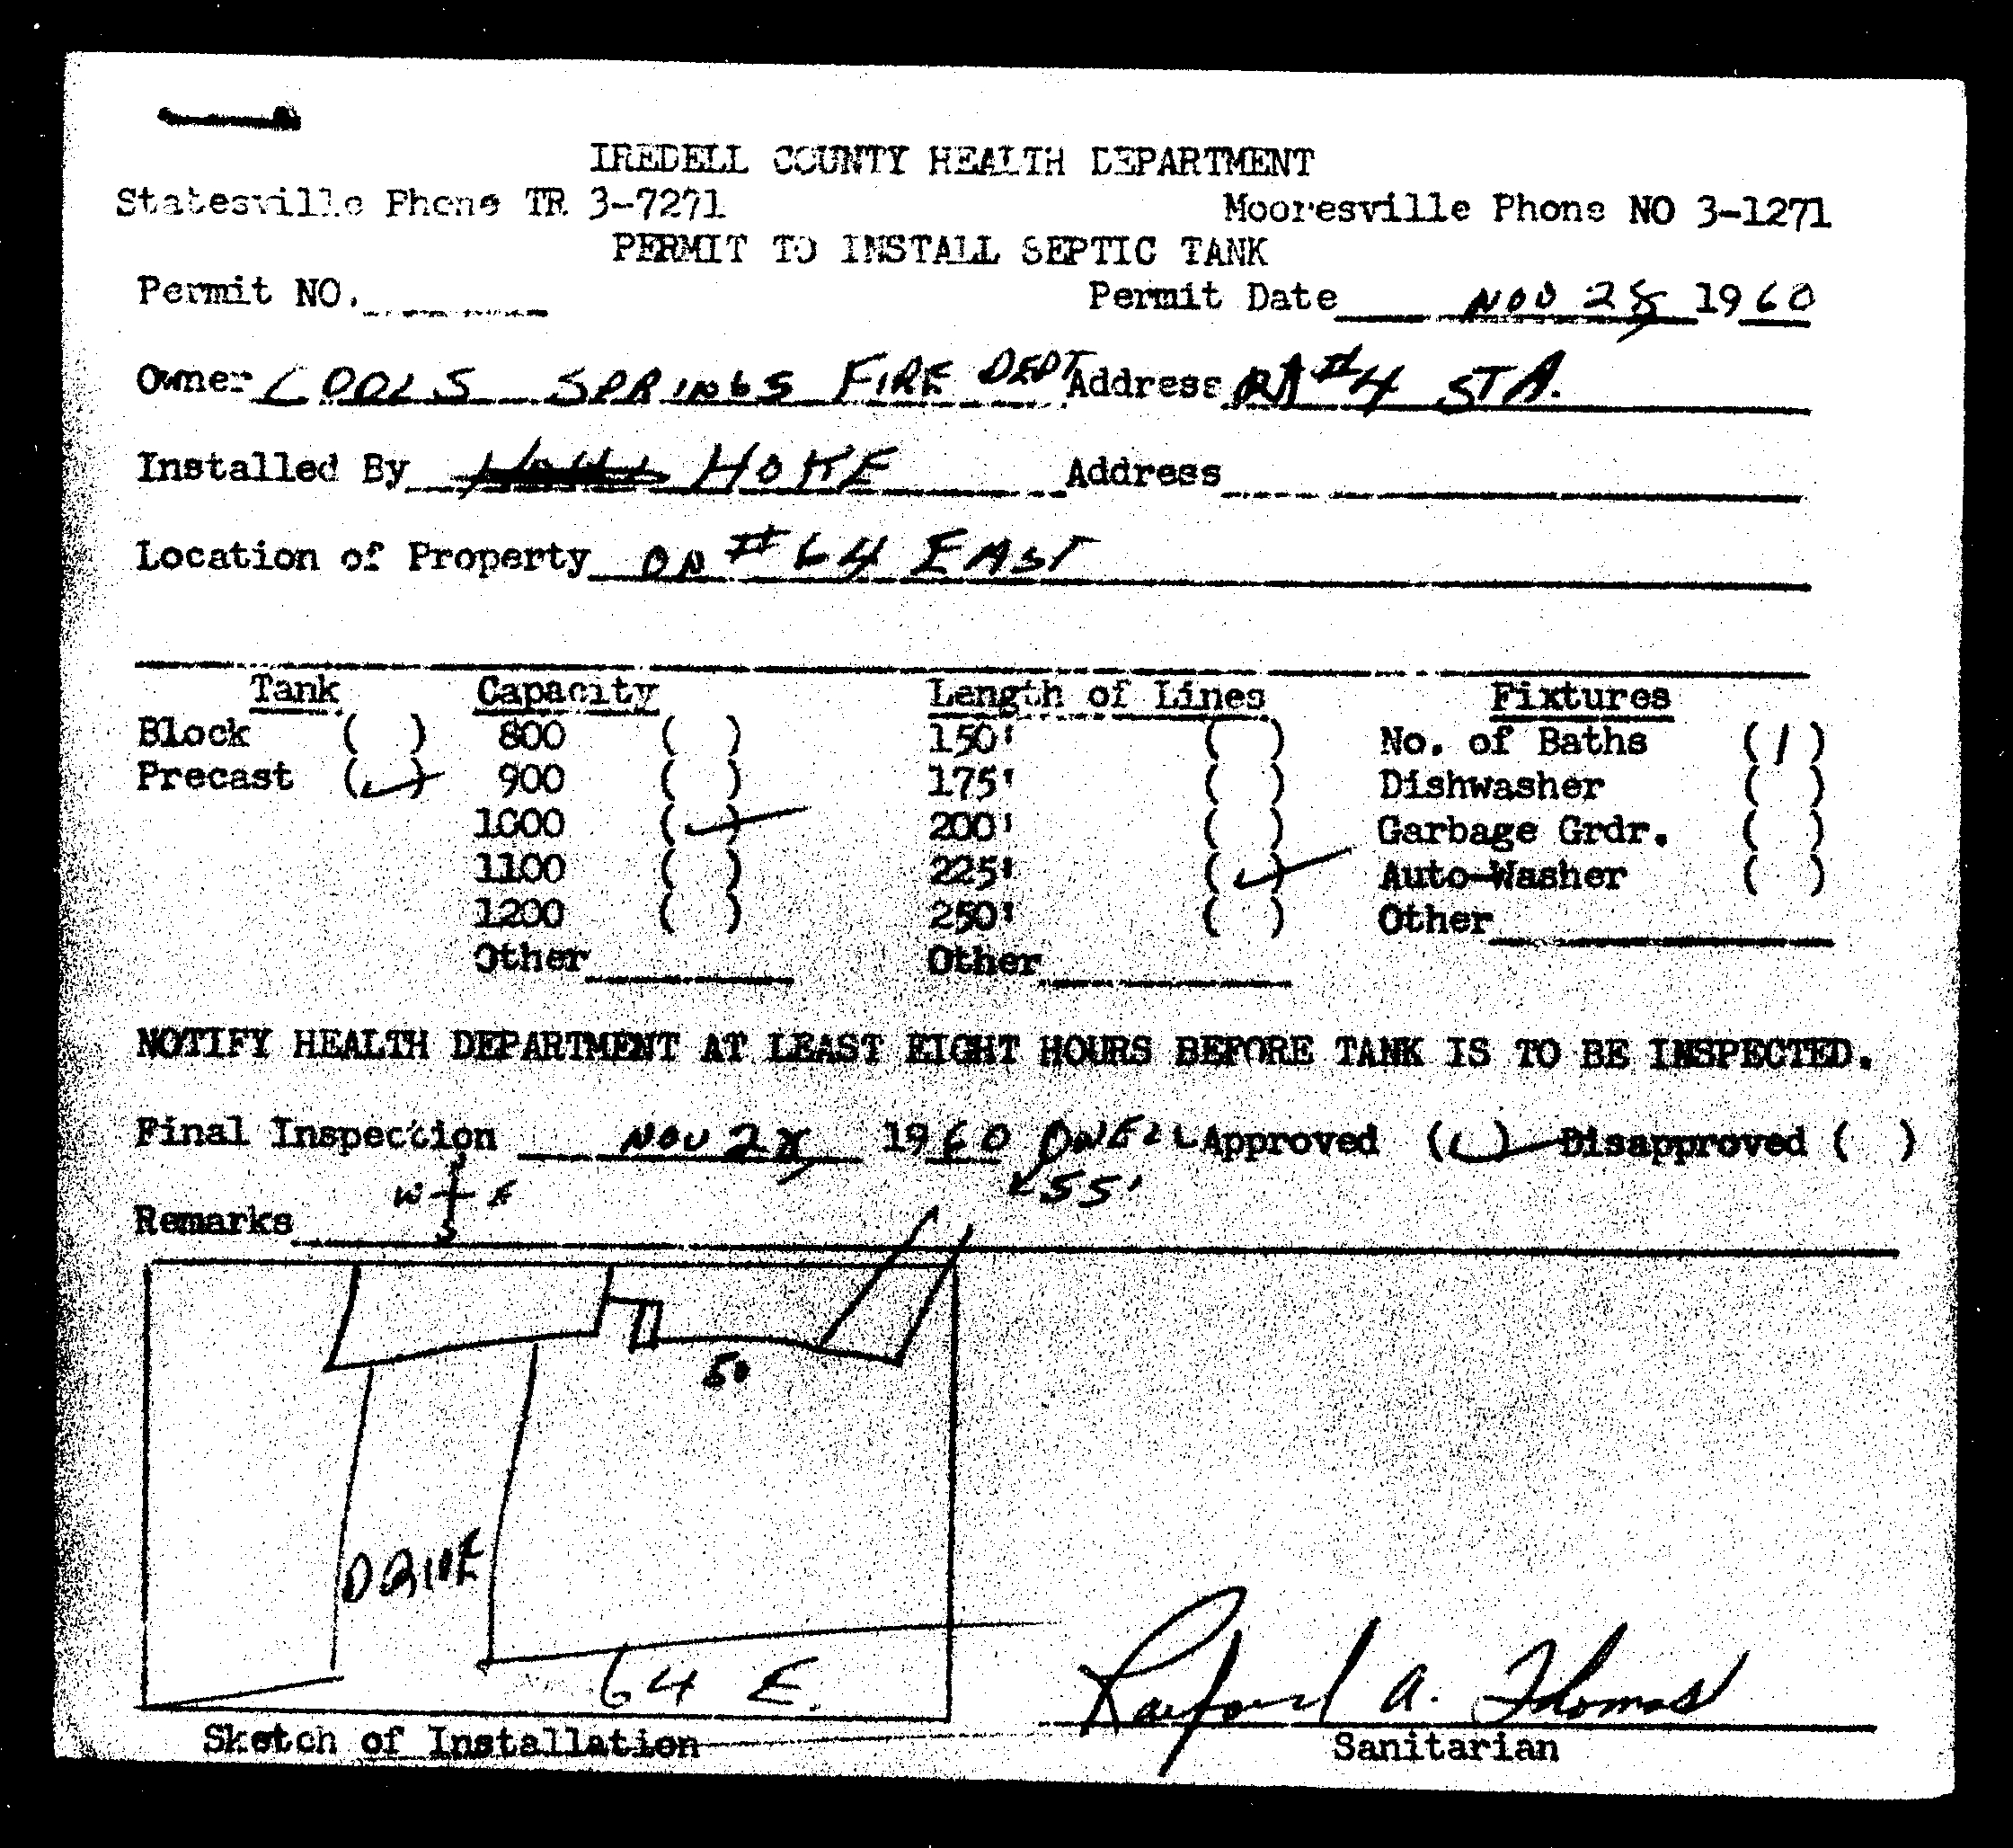 IREDELL COUNTY HEALTH DEPARTMENT
Statesville Phone TR 3-7271 Mooresville Phone NO 3-1271
PERMIT TO INSTALL SEPTIC TANK
Permit NO. Permit Date NOV 28 1960
Owner COOLS SPRINGS FIRE DEPT Address Rt #4 STA.
Installed By HOKE Address
Location of Property ON #64 EAST
Tank Capacity Length of Lines Fixtures
Block ( ) 800 ( ) 150' ( ) No. of Baths (1)
Precast (✓) 900 ( ) 175' ( ) Dishwasher ( )
1000 (✓) 200' ( ) Garbage Grdr. ( )
1100 ( ) 225' (✓) Auto-Washer ( )
1200 ( ) 250' ( ) Other
Other Other
NOTIFY HEALTH DEPARTMENT AT LEAST EIGHT HOURS BEFORE TANK IS TO BE INSPECTED.
Final Inspection NOV 28 1960 Approved (✓) Disapproved ( )
W E 55'
Remarks S
50
DRIVE
64 E.
Raeford A. Thomas
Sketch of Installation Sanitarian